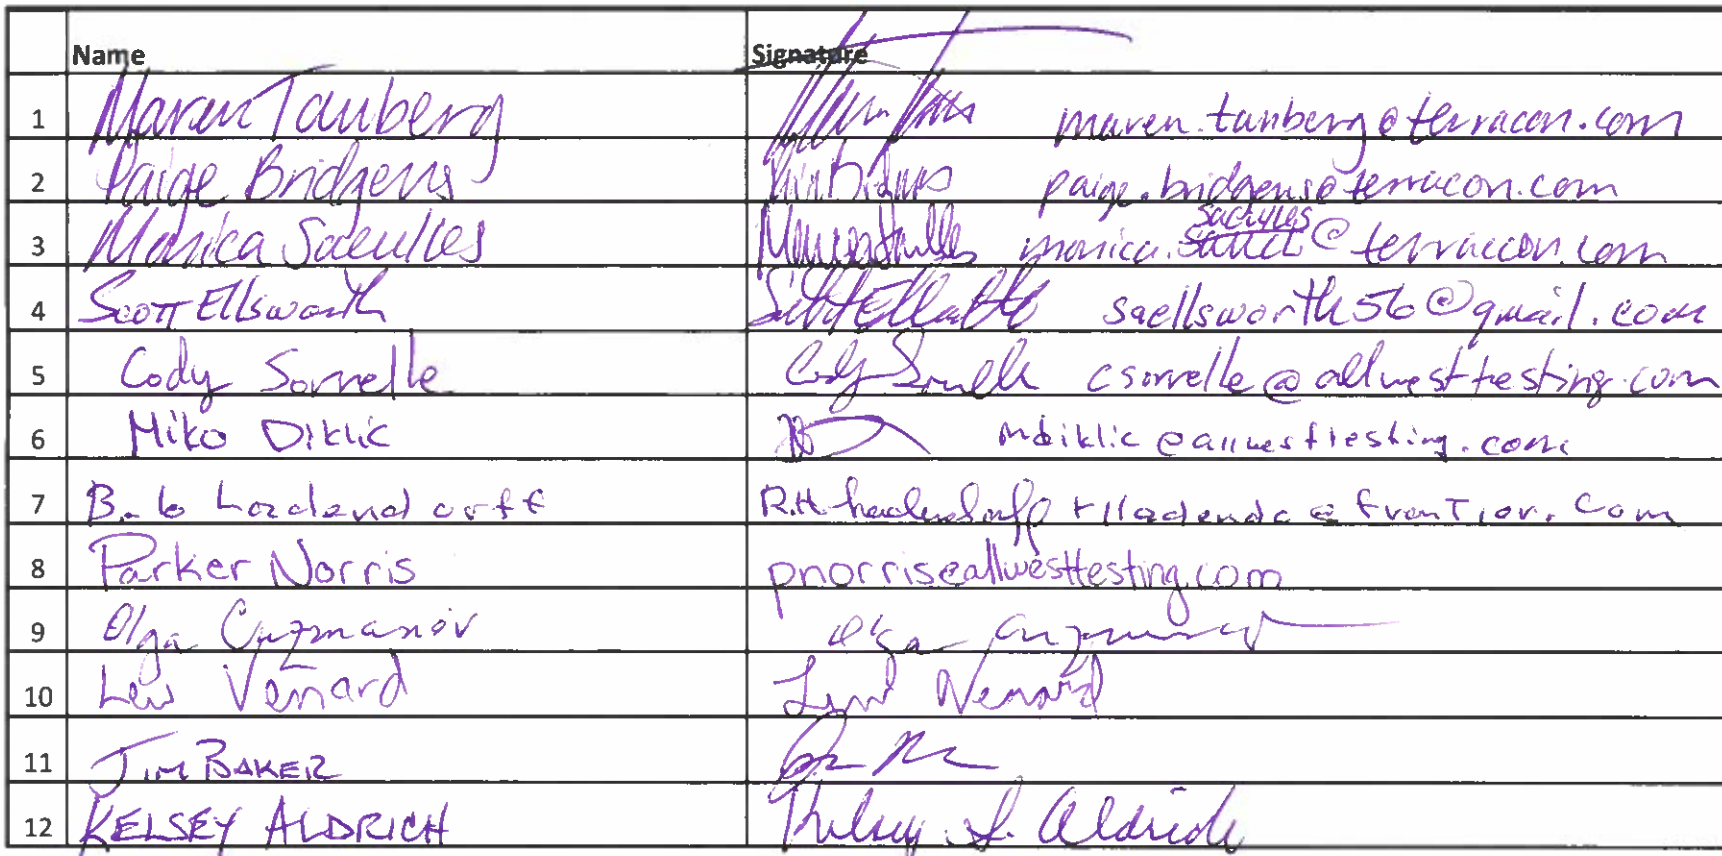 Name Signature
1 Maren Tanberg maren.tanberg@terracon.com
2 Paige Bridgens paige.bridgens@terracon.com
3 Monica Saculles monica. saculles @terracon.com
4 Scott Ellsworth Scott Ellsworth saellsworth56@gmail.com
5 Cody Sorrelle Cody Sorrelle csorrelle@allwesttesting.com
6 Miko Diklic mdiklic@allwesttesting.com
7 Bob Hadendorff R.H. @frontier.com
8 Parker Norris pnorris@allwesttesting.com
9 Olga Cuzmanov Olga
10 Lew Venard Venard
11 Jim Baker
12 KELSEY ALDRICH Kelsey S. Aldrich